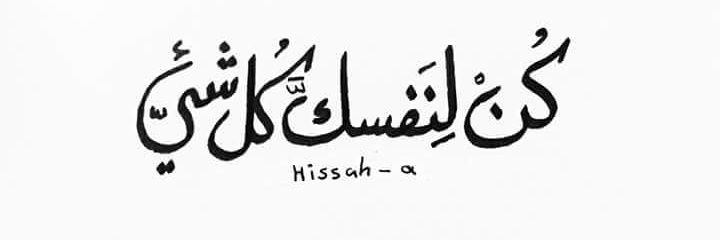 كُنْ لِنَفسك كُلَّ شئيّ
Hissah - a